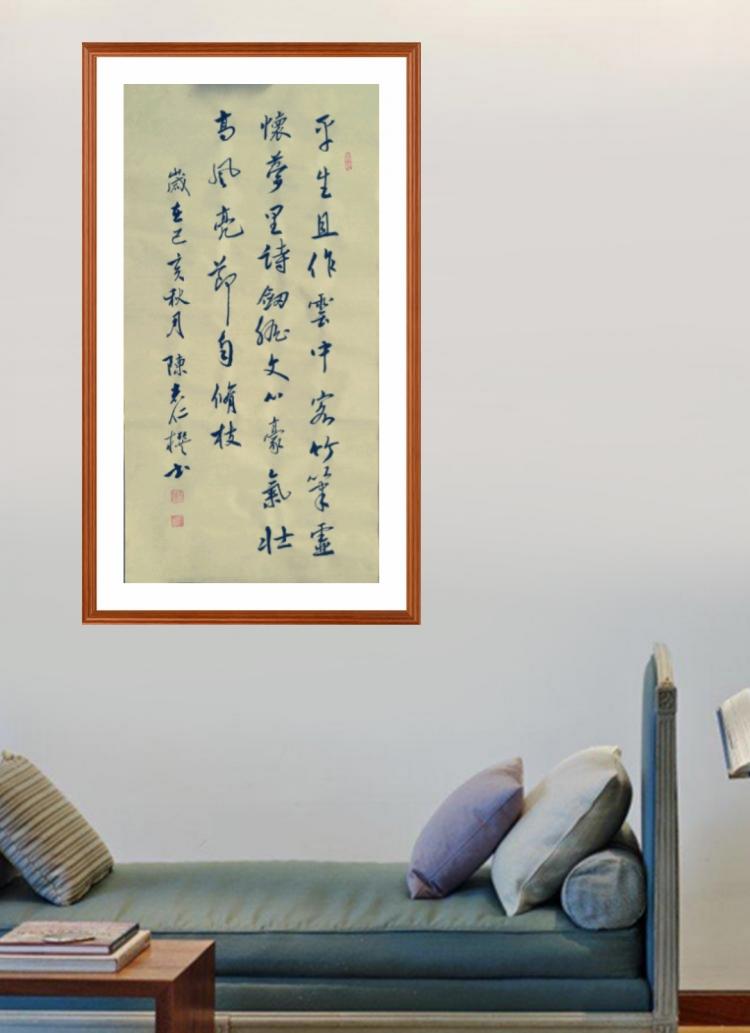 平生且作雲中客竹筆靈
懷夢里詩劒膽文心豪氣壯
高風亮節自脩枝
歲在己亥秋月陳志仁撰書